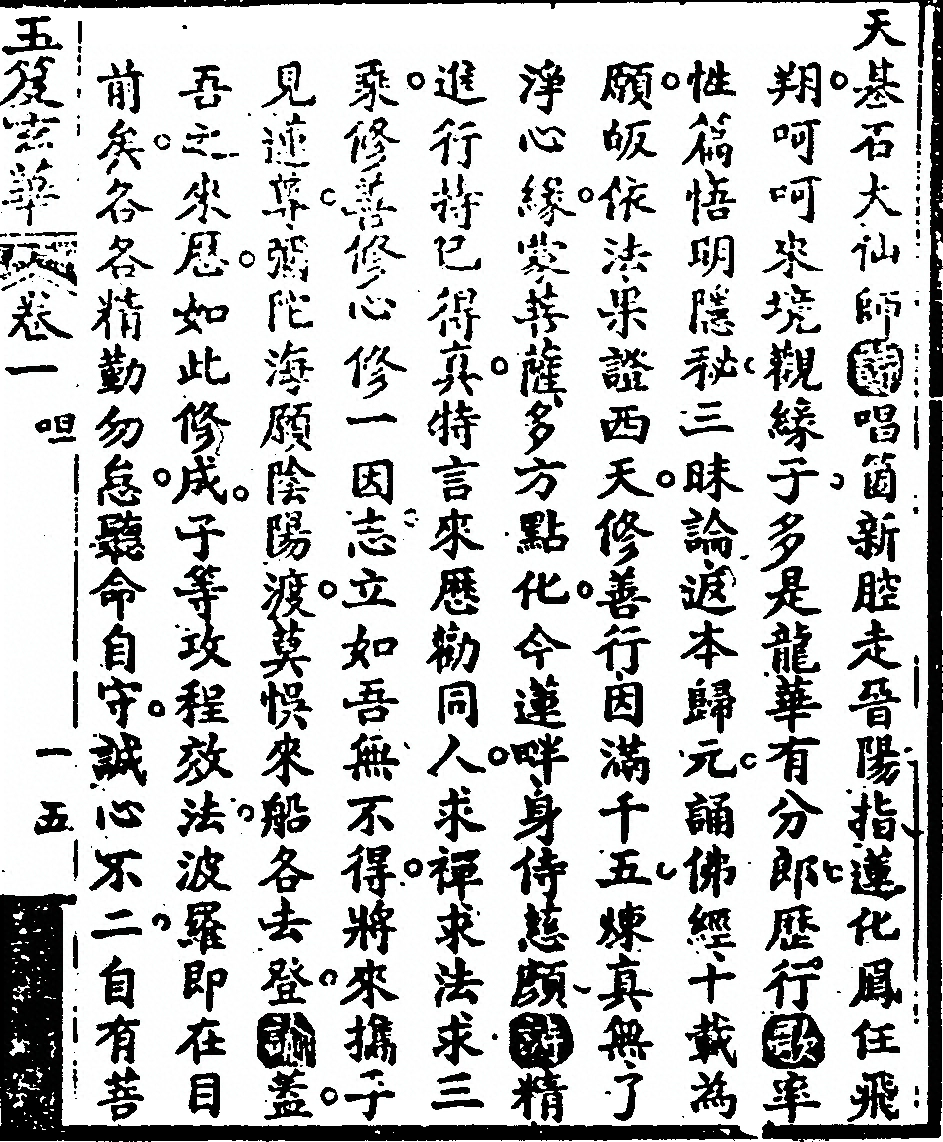 天基石大仙師詩唱箇新腔走晉陽指蓮化鳳任飛
翔呵呵來境觀緣子多是龍華有分郎歷行歌率
性篇悟明隱秘三昧論返本歸元誦佛經十載為
願皈依法果證西天修善行因滿千五煉真無了
淨心緣蒙菩薩多方點化今蓮畔身侍慈顏詩精
進行持已得真特言來歷勸同人求禪求法求三
乘修善修心修一因志立如吾無不得將來攜子
見蓮尊彌陀海願陰陽渡莫悞來船各去登諭蓋
吾之來歷如此修成子等攻程效法波羅即在目
前矣各各精勤勿怠聽命自守誠心不二自有菩
玉笈玄華 卷一 呾 一五